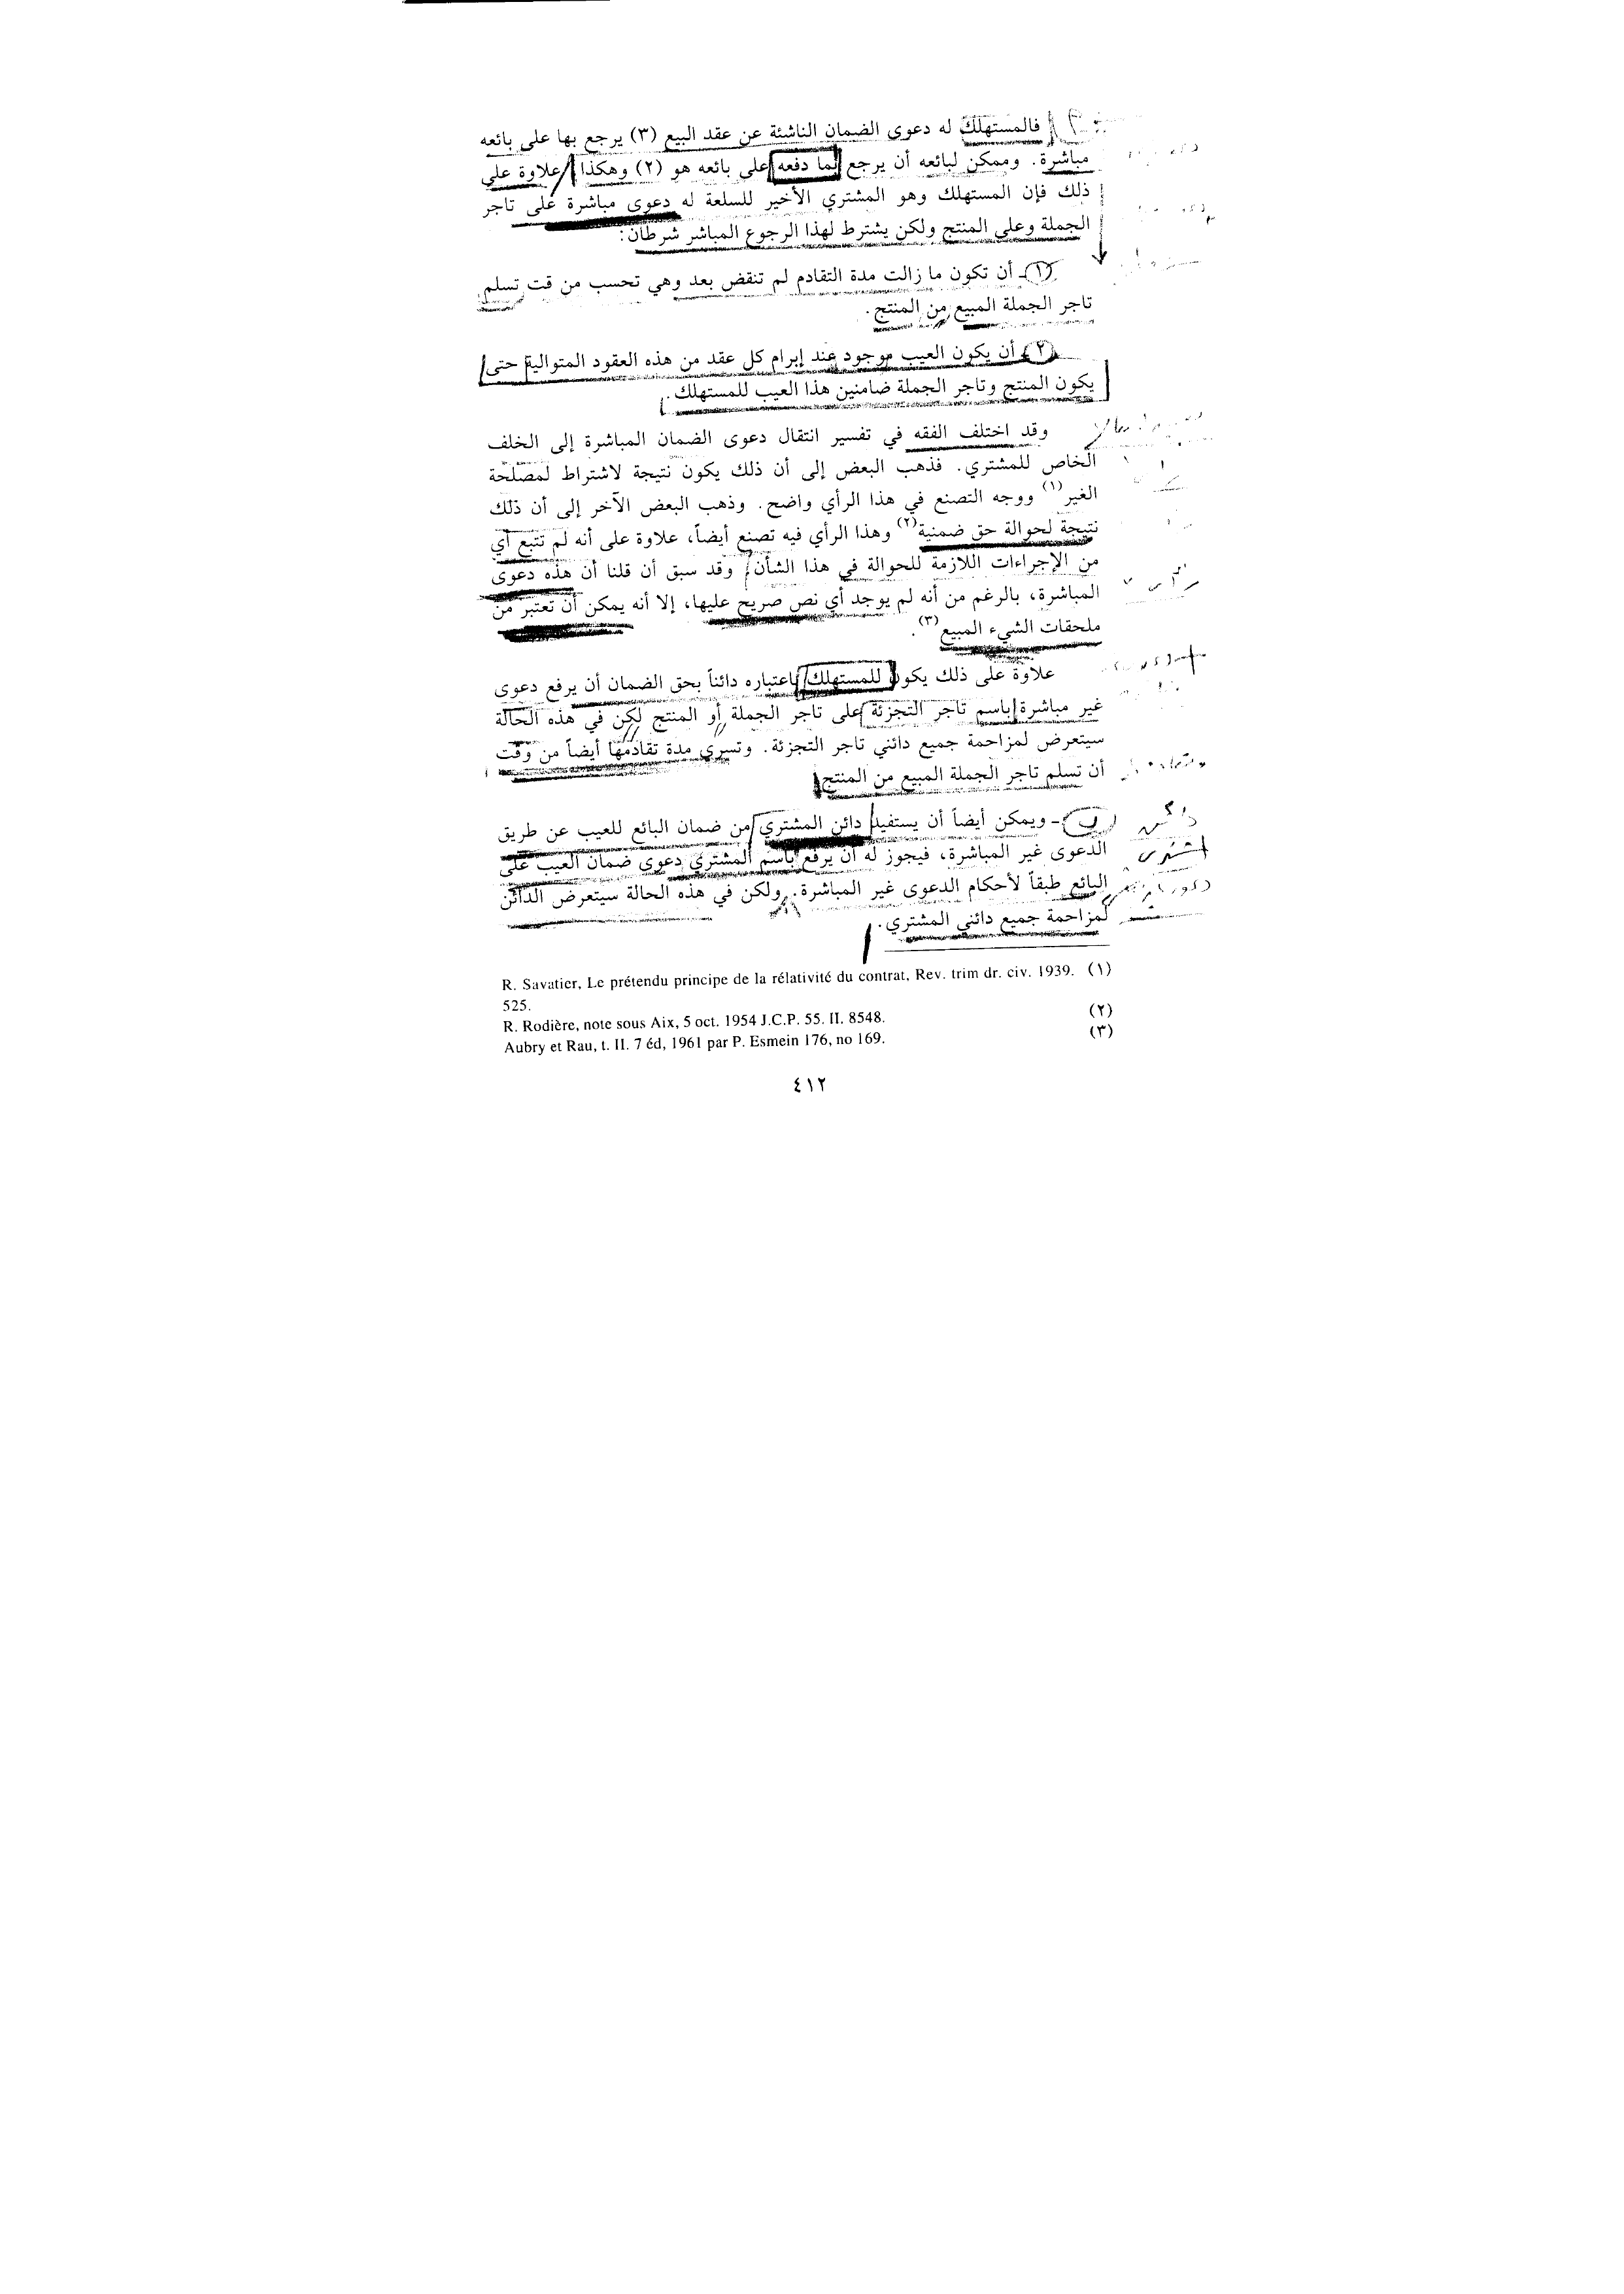 فالمستهلك له دعوى الضمان الناشئة عن عقد البيع (٣) يرجع بها على بائعه
مباشرة. وممكن لبائعه أن يرجع بما دفعه على بائعه هو (٢) وهكذا علاوة على
ذلك فإن المستهلك وهو المشتري الأخير للسلعة له دعوى مباشرة على تاجر
الجملة وعلى المنتج ولكن يشترط لهذا الرجوع المباشر شرطان:
(١) ـ أن تكون ما زالت مدة التقادم لم تنقض بعد وهي تحسب من قت تسلم
تاجر الجملة المبيع من المنتج.
(٢) ـ أن يكون العيب موجود عند إبرام كل عقد من هذه العقود المتوالية حتى
يكون المنتج وتاجر الجملة ضامنين هذا العيب للمستهلك.
وقد اختلف الفقه في تفسير انتقال دعوى الضمان المباشرة إلى الخلف
الخاص للمشتري. فذهب البعض إلى أن ذلك يكون نتيجة لاشتراط لمصلحة
الغير(١) ووجه التصنع في هذا الرأي واضح. وذهب البعض الآخر إلى أن ذلك
نتيجة لحوالة حق ضمنية(٢) وهذا الرأي فيه تصنع أيضاً، علاوة على أنه لم تتبع أي
من الإجراءات اللازمة للحوالة في هذا الشأن، وقد سبق أن قلنا أن هذه دعوى
المباشرة، بالرغم من أنه لم يوجد أي نص صريح عليها، إلا أنه يمكن أن تعتبر من
ملحقات الشيء المبيع(٣).
علاوة على ذلك يكون للمستهلك باعتباره دائناً بحق الضمان أن يرفع دعوى
غير مباشرة باسم تاجر التجزئة على تاجر الجملة أو المنتج لكن في هذه الحالة
سيتعرض لمزاحمة جميع دائني تاجر التجزئة. وتسري مدة تقادمها أيضاً من وقت
أن تسلم تاجر الجملة المبيع من المنتج.
ب ـ ويمكن أيضاً أن يستفيد دائن المشتري من ضمان البائع للعيب عن طريق
الدعوى غير المباشرة، فيجوز له أن يرفع باسم المشتري دعوى ضمان العيب على
البائع طبقاً لأحكام الدعوى غير المباشرة. ولكن في هذه الحالة سيتعرض الدائن
لمزاحمة جميع دائني المشتري.
(١) R. Savatier, Le prétendu principe de la rélativité du contrat, Rev. trim dr. civ. 1939.
525.
(٢) R. Rodière, note sous Aix, 5 oct. 1954 J.C.P. 55. II. 8548.
(٣) Aubry et Rau, t. II. 7 éd, 1961 par P. Esmein 176, no 169.
٤١٢